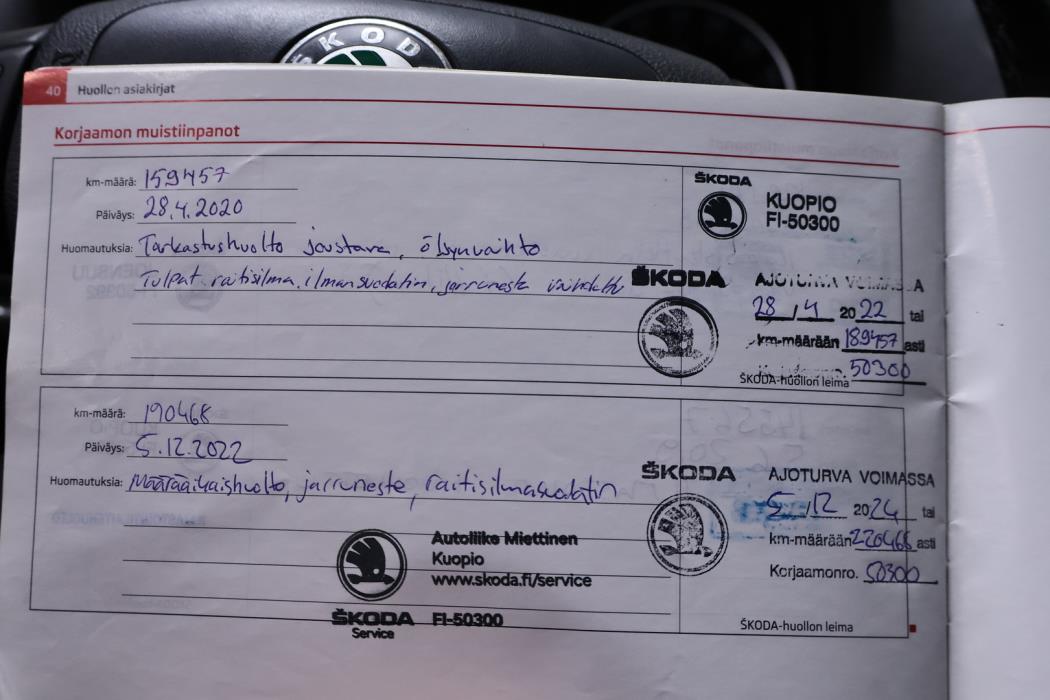 ŠKODA
40 Huollon asiakirjat
Korjaamon muistiinpanot
km-määrä: 159457
Päiväys: 28.4.2020
Huomautuksia: Tarkastushuolto joustava, öljynvaihto
Tulpat, raitisilma, ilmansuodatin, jarruneste vaihdettu
ŠKODA
KUOPIO
FI-50300
ŠKODA
AJOTURVA VOIMASSA
28/4 2022 tai
km-määrään 189457 asti
50300
ŠKODA-huollon leima
km-määrä: 190468
Päiväys: 5.12.2022
Huomautuksia: Määräaikaishuolto, jarruneste, raitisilmasuodatin
Autoliike Miettinen
Kuopio
www.skoda.fi/service
ŠKODA FI-50300
Service
ŠKODA
AJOTURVA VOIMASSA
5/12 2024 tai
km-määrään 220468 asti
Korjaamonro. 50300
ŠKODA-huollon leima